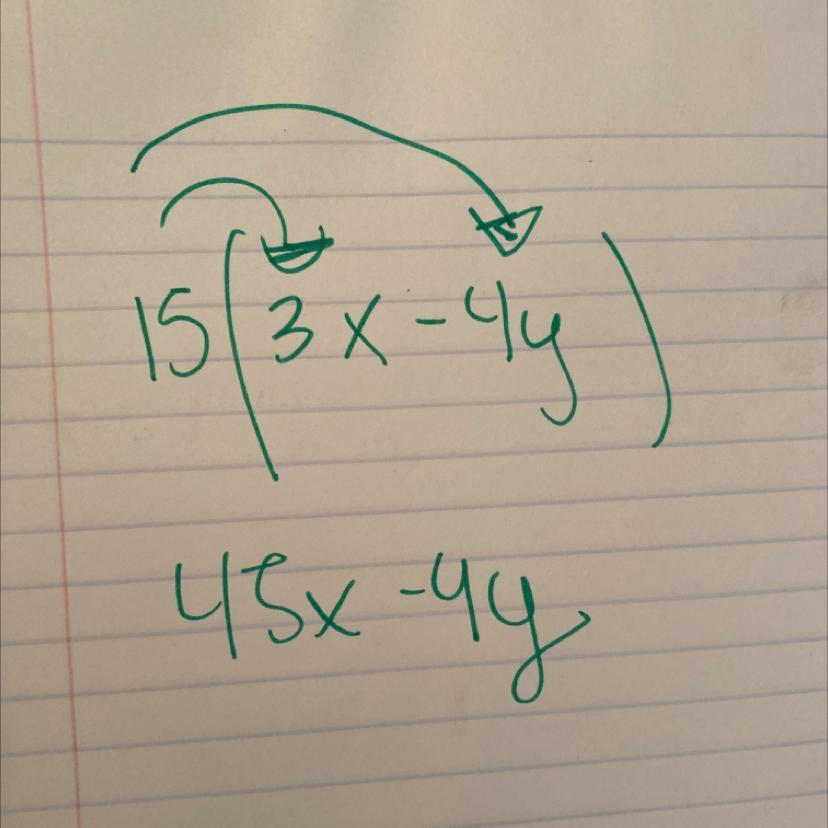 15(3x-4y)
45x-4y